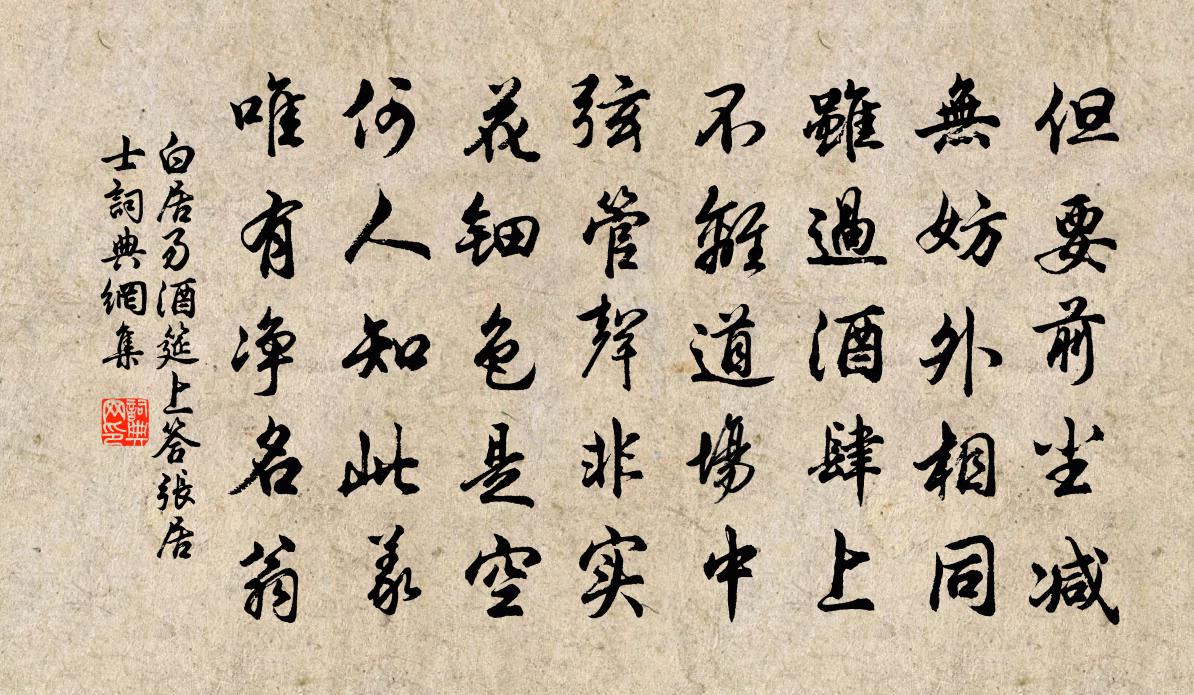 但要前尘减
無妨外相同
雖過酒肆上
不離道場中
弦管聲非实
花鈿色是空
何人知此義
唯有净名翁
白居易酒筵上答張居
士詞典網集
詞典网印